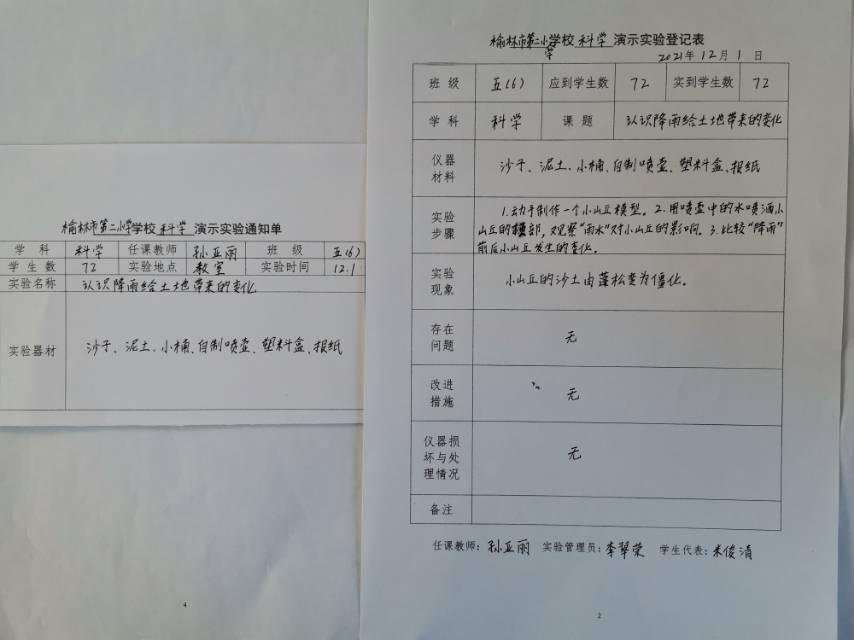 榆林市第二小学学校 科学 演示实验通知单
学科 科学 任课教师 孙亚丽 班级 五(6)
学生数 72 实验地点 教室 实验时间 12.1
实验名称 认识降雨给土地带来的变化
实验器材 沙子、泥土、小桶、自制喷壶、塑料盒、报纸
4
榆林市第二小学学校 科学 演示实验登记表
2021年12月1日
班级 五(6) 应到学生数 72 实到学生数 72
学科 科学 课题 认识降雨给土地带来的变化
仪器材料 沙子、泥土、小桶、自制喷壶、塑料盒、报纸
实验步骤 1.动手制作一个小山丘模型。2.用喷壶中的水喷洒小
山丘的顶部,观察“雨水”对小山丘的影响。3.比较“降雨”
前后小山丘发生的变化。
实验现象 小山丘的沙土由蓬松变为僵化。
存在问题 无
改进措施 无
仪器损坏与处理情况 无
备注
任课教师:孙亚丽 实验管理员:李翠荣 学生代表:米俊清
2